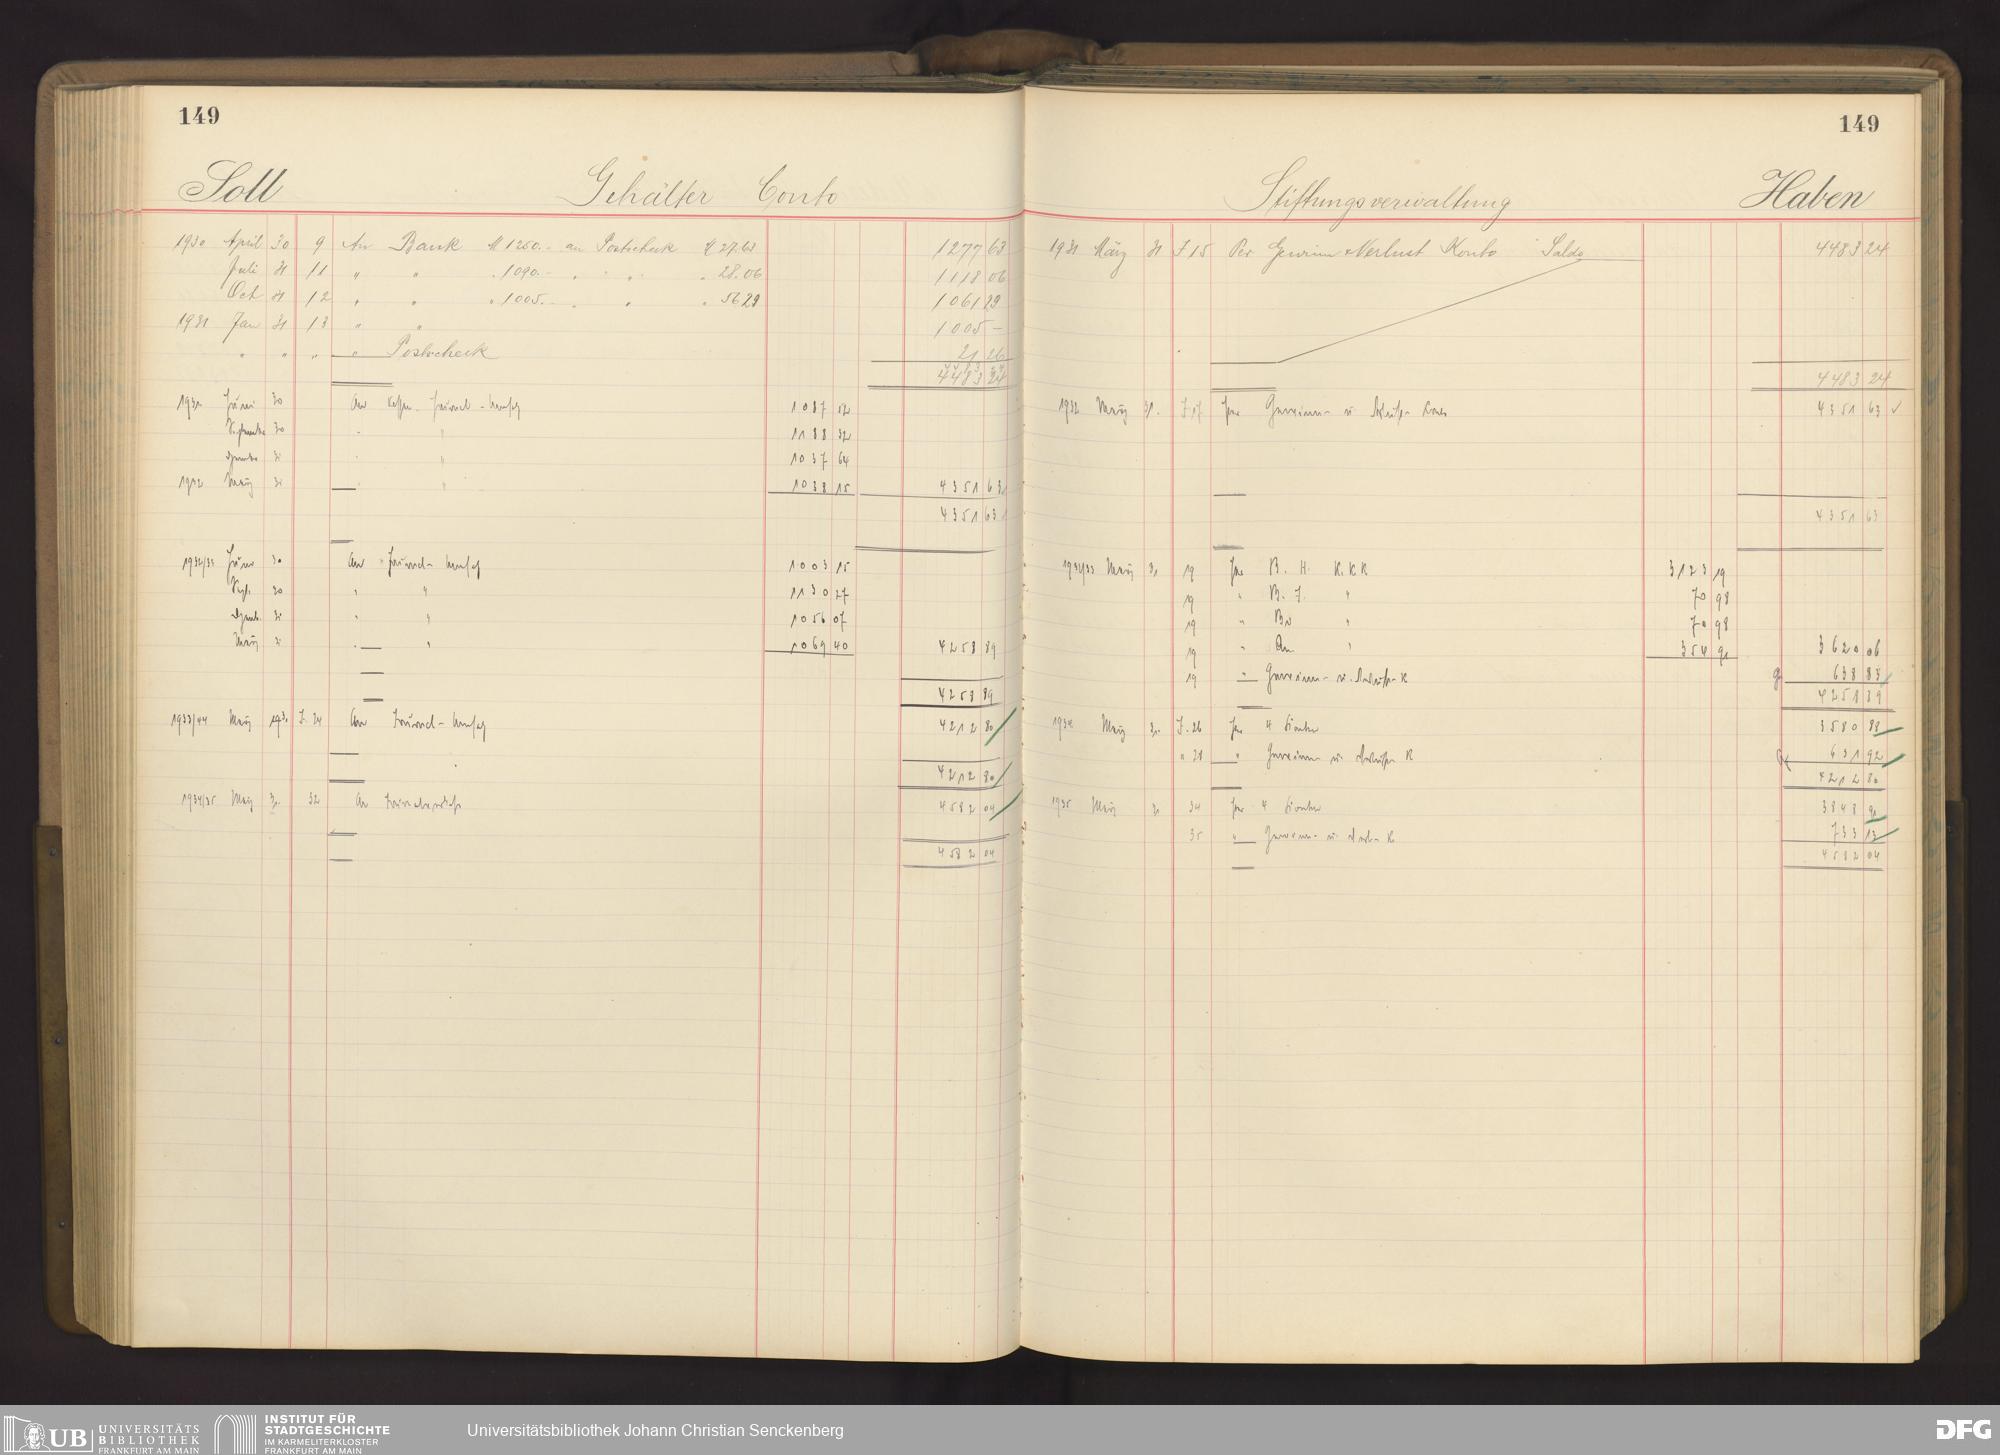 149
Soll Gehälter Conto
1930 April 30 9 An Bank M 1250.- an Postscheck M 27.63 1277 63
Juli 31 11 " " " 1090.- " " " 28.06 1118 06
Oct 31 12 " " " 1005.- " " " 56 29 1061 29
1931 Jan 31 13 " " 1005 -
" " " " Postscheck 21 26
4483 24
1931 Juni 30 An 1087 52
30 " 1188 32
31 " 1037 64
1932 März 31 " 1038 15 4351 63
4351 63
1932/33 Juni 30 An 1003 15
Sept. 30 " " 1130 27
Dezemb. 31 " " 1056 07
März 31 " " 1069 40 4258 89
4258 89
1933/44 März J. 24 An 4212 80
4212 80
1934/35 März 31. 32 An 4582 04
4582 04
149
Stiftungsverwaltung Haben
1931 März 31 J 15 Per Gewinn & Verlust Konto Saldo 4483 24
4483 24
1932 März 31. J. 17 Per Gewinn- u Verlust- Konto 4351 63
4351 63
1932/33 März 31 19 Per B. H. K.K.K 3123 19
19 " B. J. " 70 98
19 " " 70 98
19 " " 354 91 3620 06
19 " Gewinn- u. Verlust- K 638 83
4258 89
1934 März 31. J. 26 Per 4 Konten 3580 88
" 28 " Gewinn u. Verlust K 631 92
4212 80
1935 März 31 34 Per 4 Konten 3848 91
35 " Gewinn- u. Verl- K 733 13
4582 04
UB UNIVERSITÄTS BIBLIOTHEK FRANKFURT AM MAIN
INSTITUT FÜR STADTGESCHICHTE IM KARMELITERKLOSTER FRANKFURT AM MAIN
Universitätsbibliothek Johann Christian Senckenberg
DFG